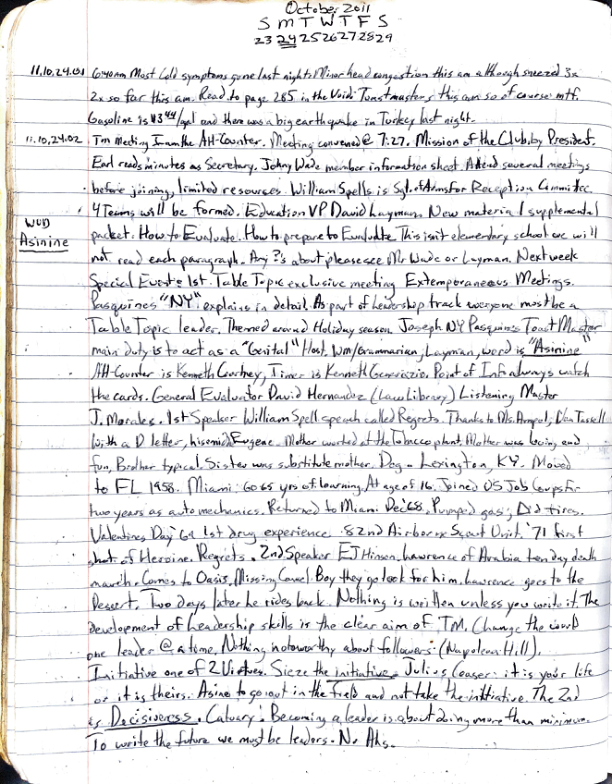 October 2011
S M T W T F S
23 24 25 26 27 28 29
11.10.24.01 6:40am Most Cold symptoms gone last night. Minor head congestion this am although sneezed 3x
2x so far this am. Read to page 285 in the Void. Toastmasters this am so of course mtf.
Gasoline is $3.44/gal and there was a big earthquake in Turkey last night.
11.10.24.02 Tm Meeting I am the AH-Counter. Meeting convened @ 7:27. Mission of the Club, by President.
Earl reads minutes as Secretary. Johny Wade member information sheet. Attend several meetings
before joining, limited resources. William Spells is Sgt. of Arms for Reception Committee.
4 Teams will be formed. Education VP David Layman. New material supplemental
packet. How to Evaluate. How to prepare to Evaluate. This isn't elementary school we will
WUD
Asinine
not read each paragraph. Any ?'s about please see Mr Wade or Layman. Next week
Special Event 1st. Table Topic exclusive meeting Extemporaneous Meetings.
Pasquines "NY" explains in detail. As part of leadership track everyone must be a
Table Topic leader. Themed around Holiday season. Joseph NY Pasquines Toast Master
main duty is to act as a "Genital" Host. Wm/Grammarian, Layman, word is "Asinine"
AH-Counter is Kenneth Courtney, Timer is Kenneth. Point of Info always watch
the cards. General Evaluator David Hernandez (Law Library) Listening Master
J. Morales. 1st Speaker William Spell speech called Regrets. Thanks to Ms. Van Tassell
with a D letter, Eugene. Mother worked at the Tobacco plant, Mother was loving and
fun, Brother typical. Sister was substitute mother. Dog - Lexington, KY. Moved
to FL 1958. Miami. 60 65 yrs of learning. At age of 16. Joined US Job Corps for
two years as auto mechanics. Returned to Miami Dec '68. Pumped gas; Did tires.
Valentines Day '69 1st drug experience. 82nd Airborne Scout Unit. '71 first
shot of Heroine. Regrets. 2nd Speaker EJ Hinson. Lawrence of Arabia ten day death
march. Comes to Oasis, Missing Camel. Boy they go look for him. Lawrence goes to the
Desert. Two Days later he rides back. Nothing is written unless you write it. The
development of Leadership skills is the clear aim of TM. Change the world
one leader @ a time. Nothing noteworthy about followers. (Napoleon Hill).
Initiative one of 2 Virtues. Sieze the initiative. Julius Ceaser: it is your life
or it is theirs. Asine to go out in the field and not take the initiative. The 2nd
is Decisivess. Calvary: Becoming a leader is about doing more than minimum.
To write the future we must be leaders. No Ahs.